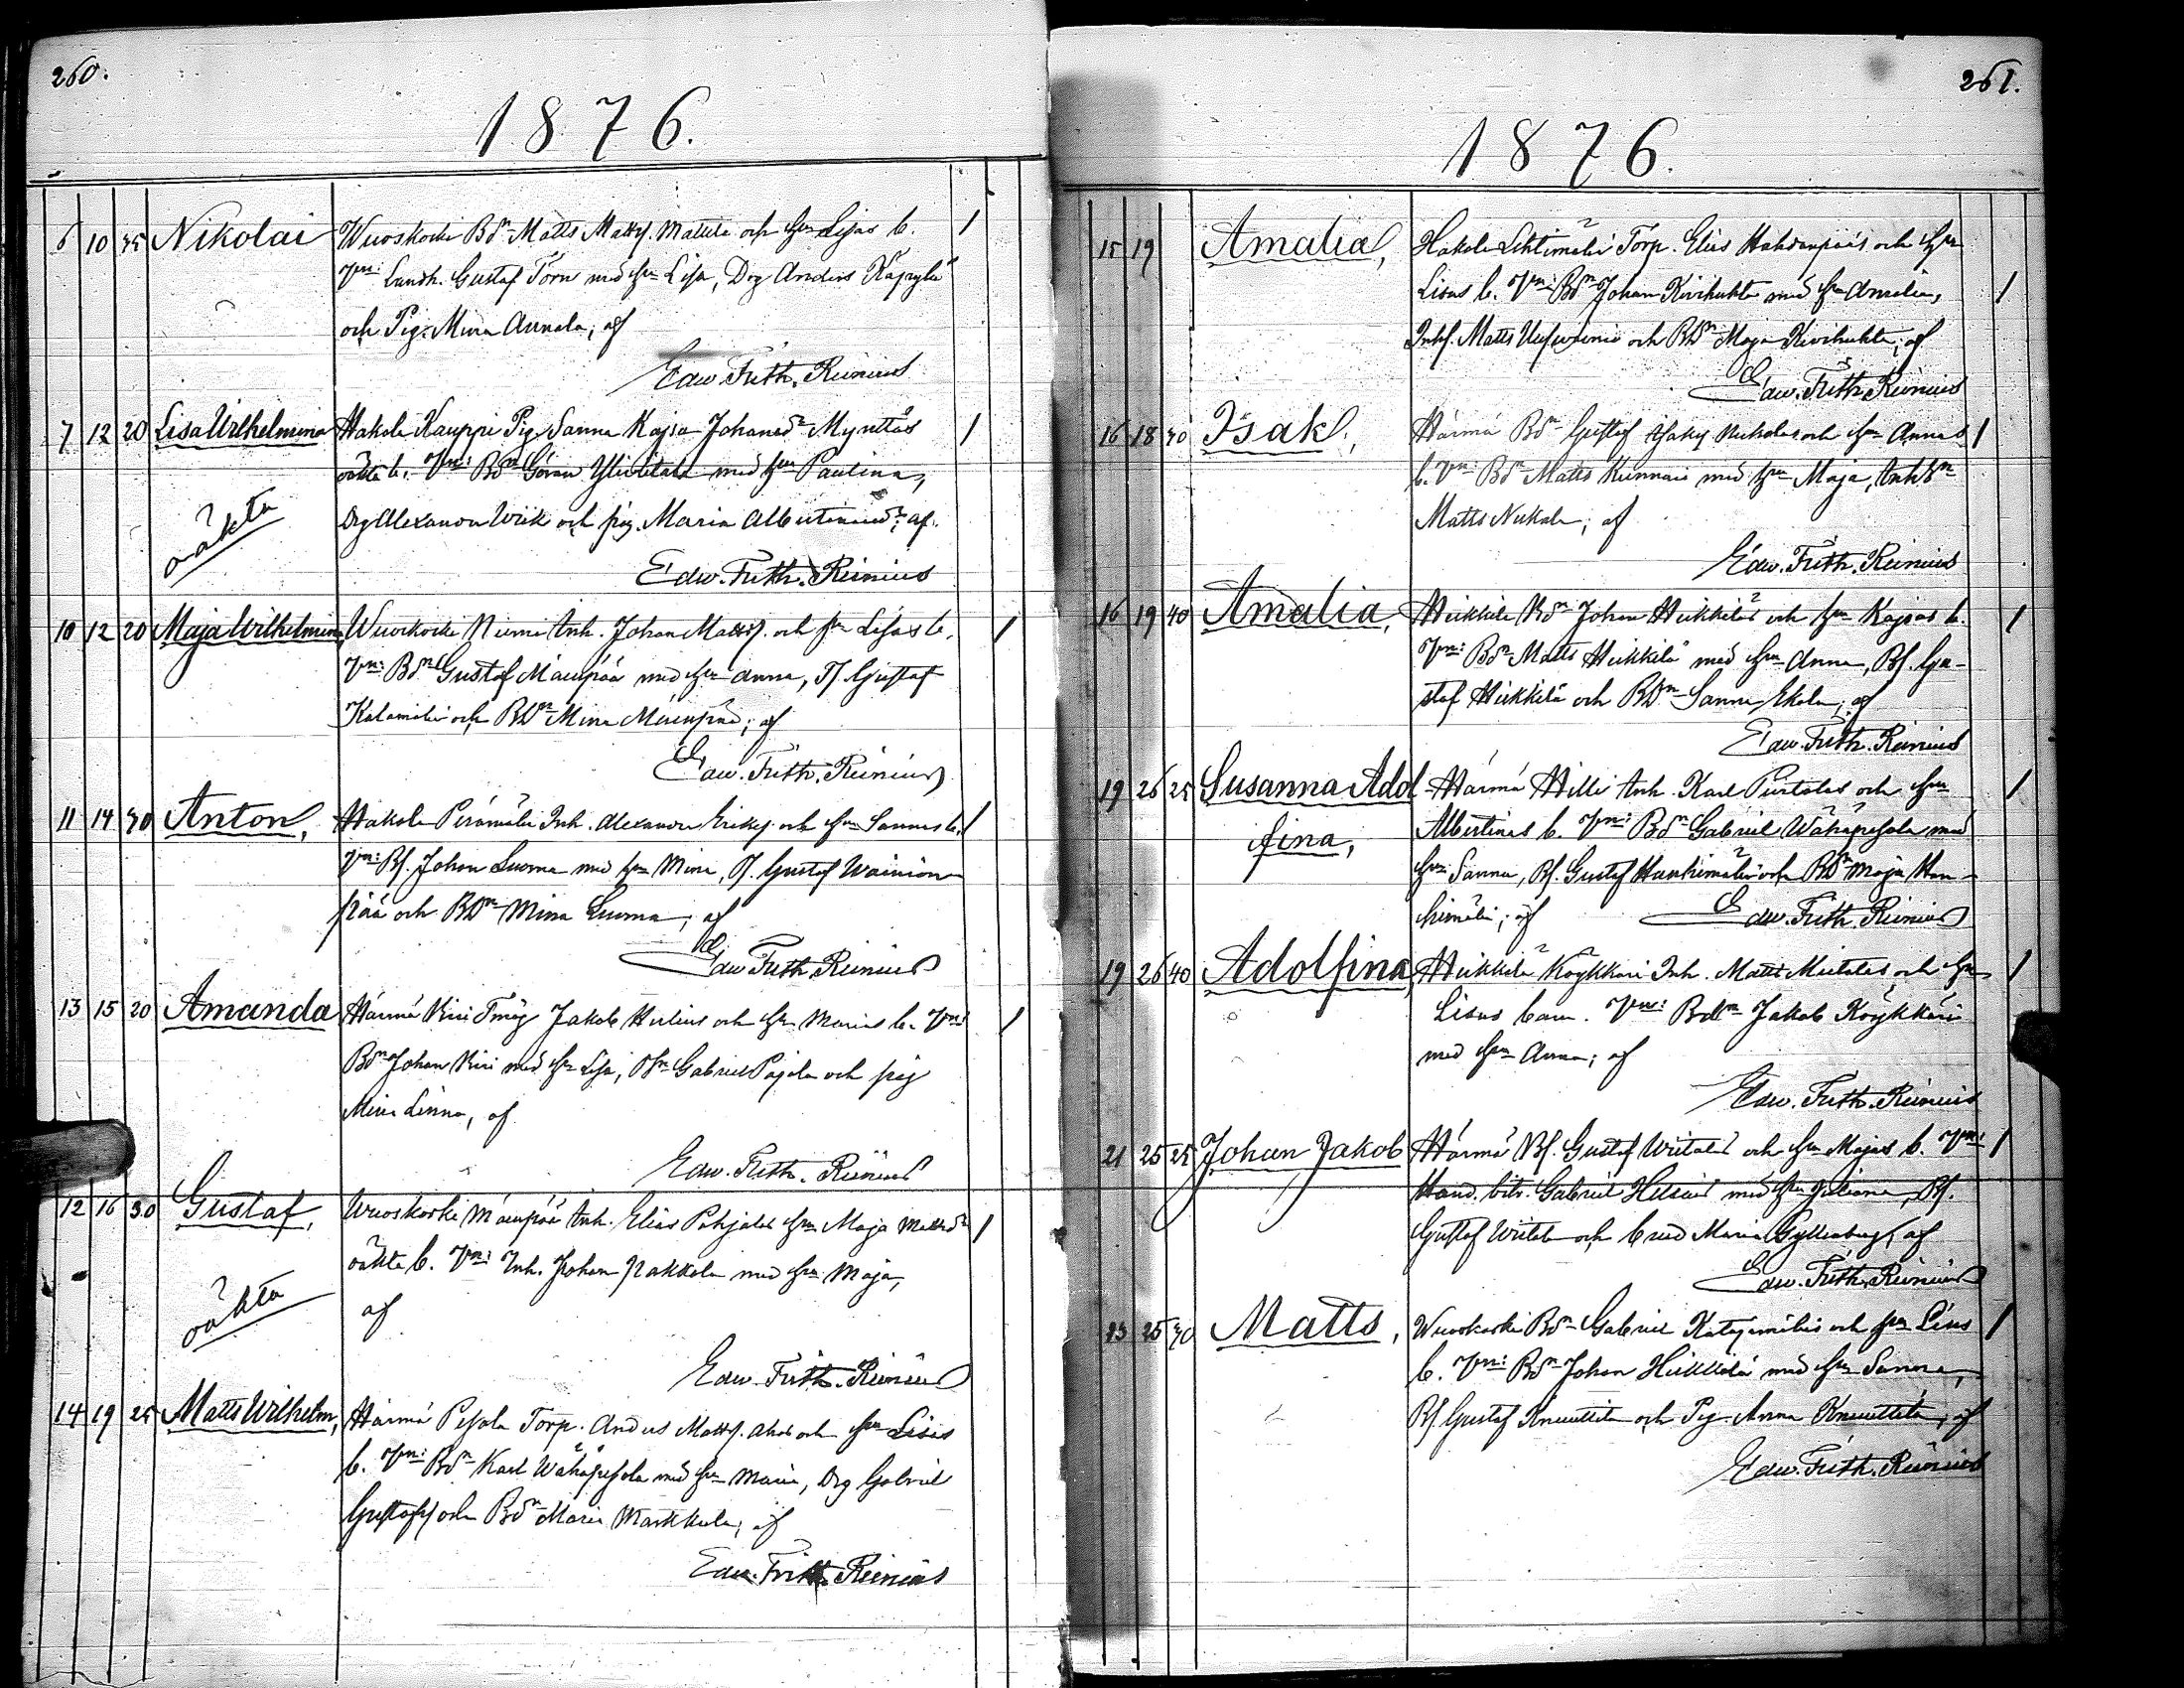 260.
1876.
6 10 45 Nikolai Wuoskoski Bdn Matts Matts. Mattila och hu Lisas b.
Vni: Landh. Gustaf Törn med hu Lisa, Drg Anders Käpylä
och Pig. Mina Annala; af
Edw. Frith. Reinius
7 12 20 Lisa Wilhelmina Hakola Kauppi Pig. Sanna Kajsa Johansdr
oäkta b. Vni: Bdn Göran Ylivitala med hu Paulina,
oäkta Drg Alexander Wiik och pig. Maria Albertina; af
Edw. Frith. Reinius
10 12 20 Maja Wilhelmina Wuoskoski Niemi Inh. Johan Matts. och hu Lisas b.
Vni: Bdn Gustaf Mäenpää med hu Anna, Gustaf
och Mina Mäenpää; af
Edw. Frith. Reinius
11 14 40 Anton, Hakola Perämäki Inh. Alexander Eriks. och hu Sannas b.
Vni: Bs. Johan Luoma med hu Mina, Gustaf Wainion-
pää och BDn Mina Luoma; af
Edw. Frith. Reinius
13 15 20 Amanda Härmä Kiri Jakob och hu Marias b. Vni:
Bdn Johan Kiri med hu Lisa, Gabriel Pajala och pig
Mina Linna, af
Edw. Frith. Reinius
12 16 30 Gustaf, Wuoskoski Mäenpää Inh. Elias Pohjalas hu Maja Mattsdr
oäkta b. Vni: Inh. Johan Pakkala med hu Maja,
oäkta af
Edw. Frith. Reinius
14 19 25 Matts Wilhelm, Härmä Pesola Torp. Anders Matts. och hu Lisas
b. Vni: Bdn Karl Wähäpesola med hu Maria, Drg Gabriel
Gustafs. och Bdn Maria Markkula; af
Edw. Frith. Reinius
261.
1876.
15 19 Amalia, Hakola Lehtimäki Torp. Elias och hu
Lisas b. Vni: Bdn Johan Kivihuhta med hu Amalia,
Inhs. Matts och BDn Maja Kivihuhta; af
Edw. Frith. Reinius
16 18 40 Isak, Härmä Bdn Gustaf Isaks. Nukalas och hu Annas
b. Vni: Bdn Matts med hu Maja,
Matts Nukala; af
Edw. Frith. Reinius
16 19 40 Amalia, Heikkilä Bdn Johan Heikkiläs och hu Kajsas b.
Vni: Bdn Matts Heikkilä med hu Anna, Bs. Gu-
staf Heikkilä och BDn Sanna Ekola; af
Edw. Frith. Reinius
19 26 25 Susanna Adol- Härmä Hilli Inh. Karl och hu
fina, Albertinas b. Vni: Bdn Gabriel Wähäpesola med
hu Sanna, Bs. Gustaf Hankimäki och BDn Maja Han-
kimäki; af Edw. Frith. Reinius
19 26 40 Adolfina, Heikkilä Köykkäri Inh. Matts och hu
Lisas barn. Vni: Bdn Jakob Köykkäri
med hu Anna; af
Edw. Frith. Reinius
21 25 25 Johan Jakob Härmä Bs. Gustaf Wiitalas och hu Majas b. Vni:
Hand. bitr. Gabriel med hu Juliana, Bs.
Gustaf Wiitala och Maria Gyllenberg; af
Edw. Frith. Reinius
23 25 40 Matts, Wuoskoski Bdn Gabriel Katajamäkis och hu Lisas
b. Vni: Bdn Johan Heikkilä med hu Sanna,
Bs. Gustaf Knuuttila och Pig. Anna Knuuttila; af
Edw. Frith. Reinius